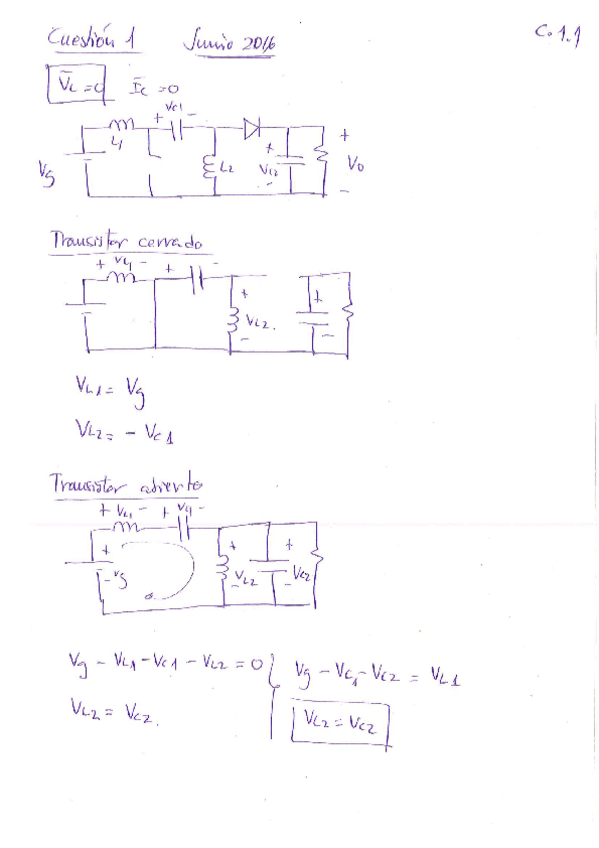 Cuestión 1 Junio 2016 C.1.1
V̅L = 0 I̅c = 0
+ Vc1 -
L1
Vg L2 + Vc2 - + Vo -
Transistor cerrado
+ VL1 - + -
+ VL2. - + -
VL1 = Vg
VL2 = - Vc1
Transistor abierto
+ VL1 - + Vc1 -
+ - Vg + VL2 - + Vc2 -
Vg - VL1 - Vc1 - VL2 = 0 { Vg - Vc1 - Vc2 = VL1
VL2 = Vc2. VL2 = Vc2